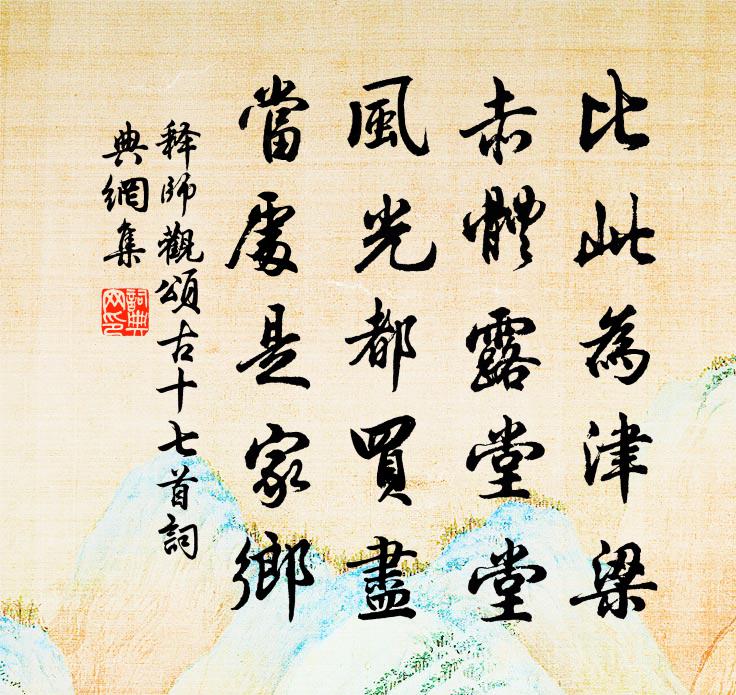 比此為津梁
赤體露堂堂
風光都買盡
當處是家鄉
释師觀頌古十七首詞
典網集
詞典
网印